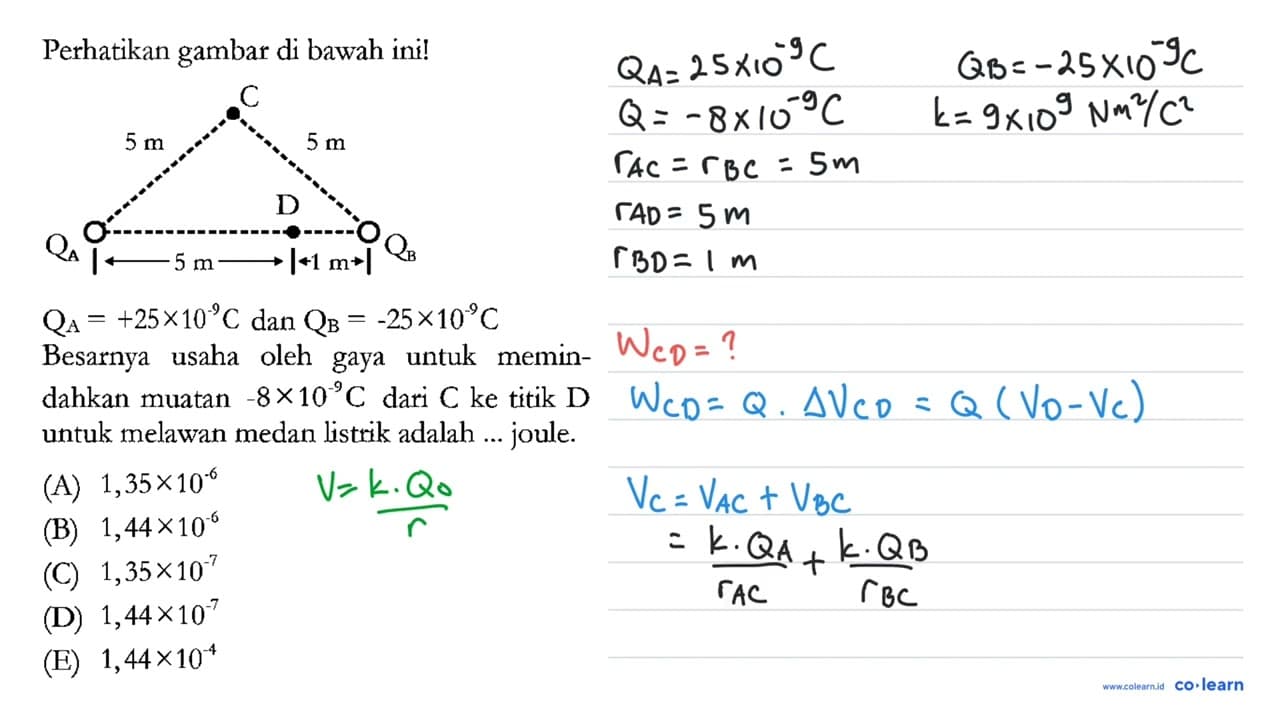 Perhatikan gambar di bawah ini!
C
5 m
5 m
D
Q_A
Q_B
5 m
1 m
Q_A = +25×10^-9 C dan Q_B = -25×10^-9 C
Besarnya usaha oleh gaya untuk memin-
dahkan muatan -8×10^-9 C dari C ke titik D
untuk melawan medan listrik adalah ... joule.
(A) 1,35×10^-6
(B) 1,44×10^-6
(C) 1,35×10^-7
(D) 1,44×10^-7
(E) 1,44×10^-4
V = k.Q0 / r
QA = 25×10^-9 C QB = -25×10^-9 C
Q = -8×10^-9 C k = 9×10^9 Nm²/C²
rAC = rBC = 5m
rAD = 5 m
rBD = 1 m
WCD = ?
WCD = Q . ΔVCD = Q (VD - VC)
VC = VAC + VBC
= k.QA / rAC + k.QB / rBC
www.colearn.id co·learn